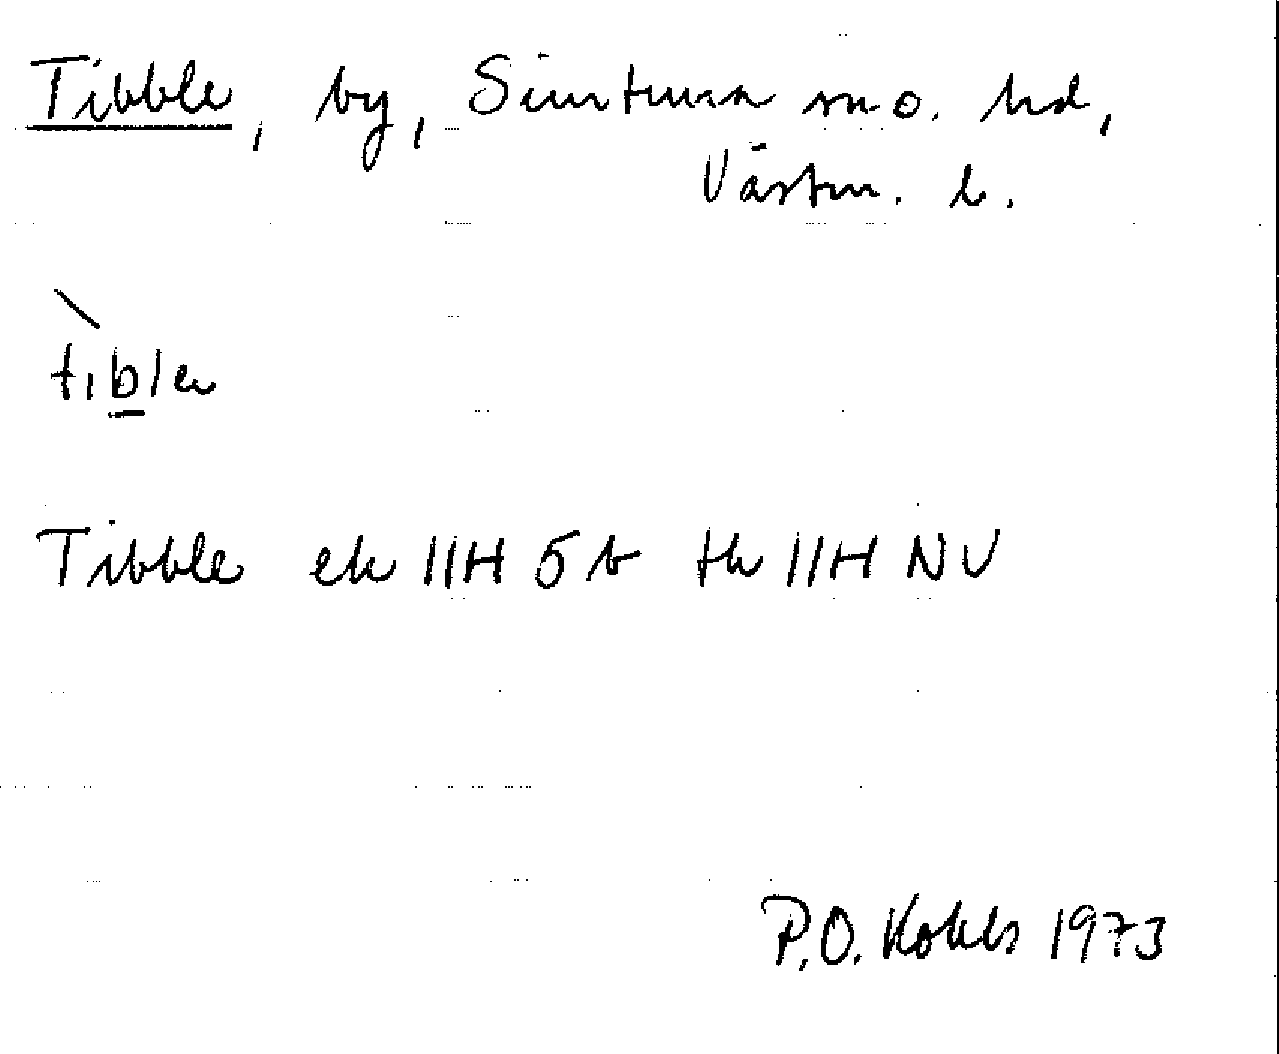 Tibble, by, Simtuna sn o. hd,
Västm. l.
tìbḻer
Tibble ek 11H 5b tk 11H NV
P.O. Kohls 1973